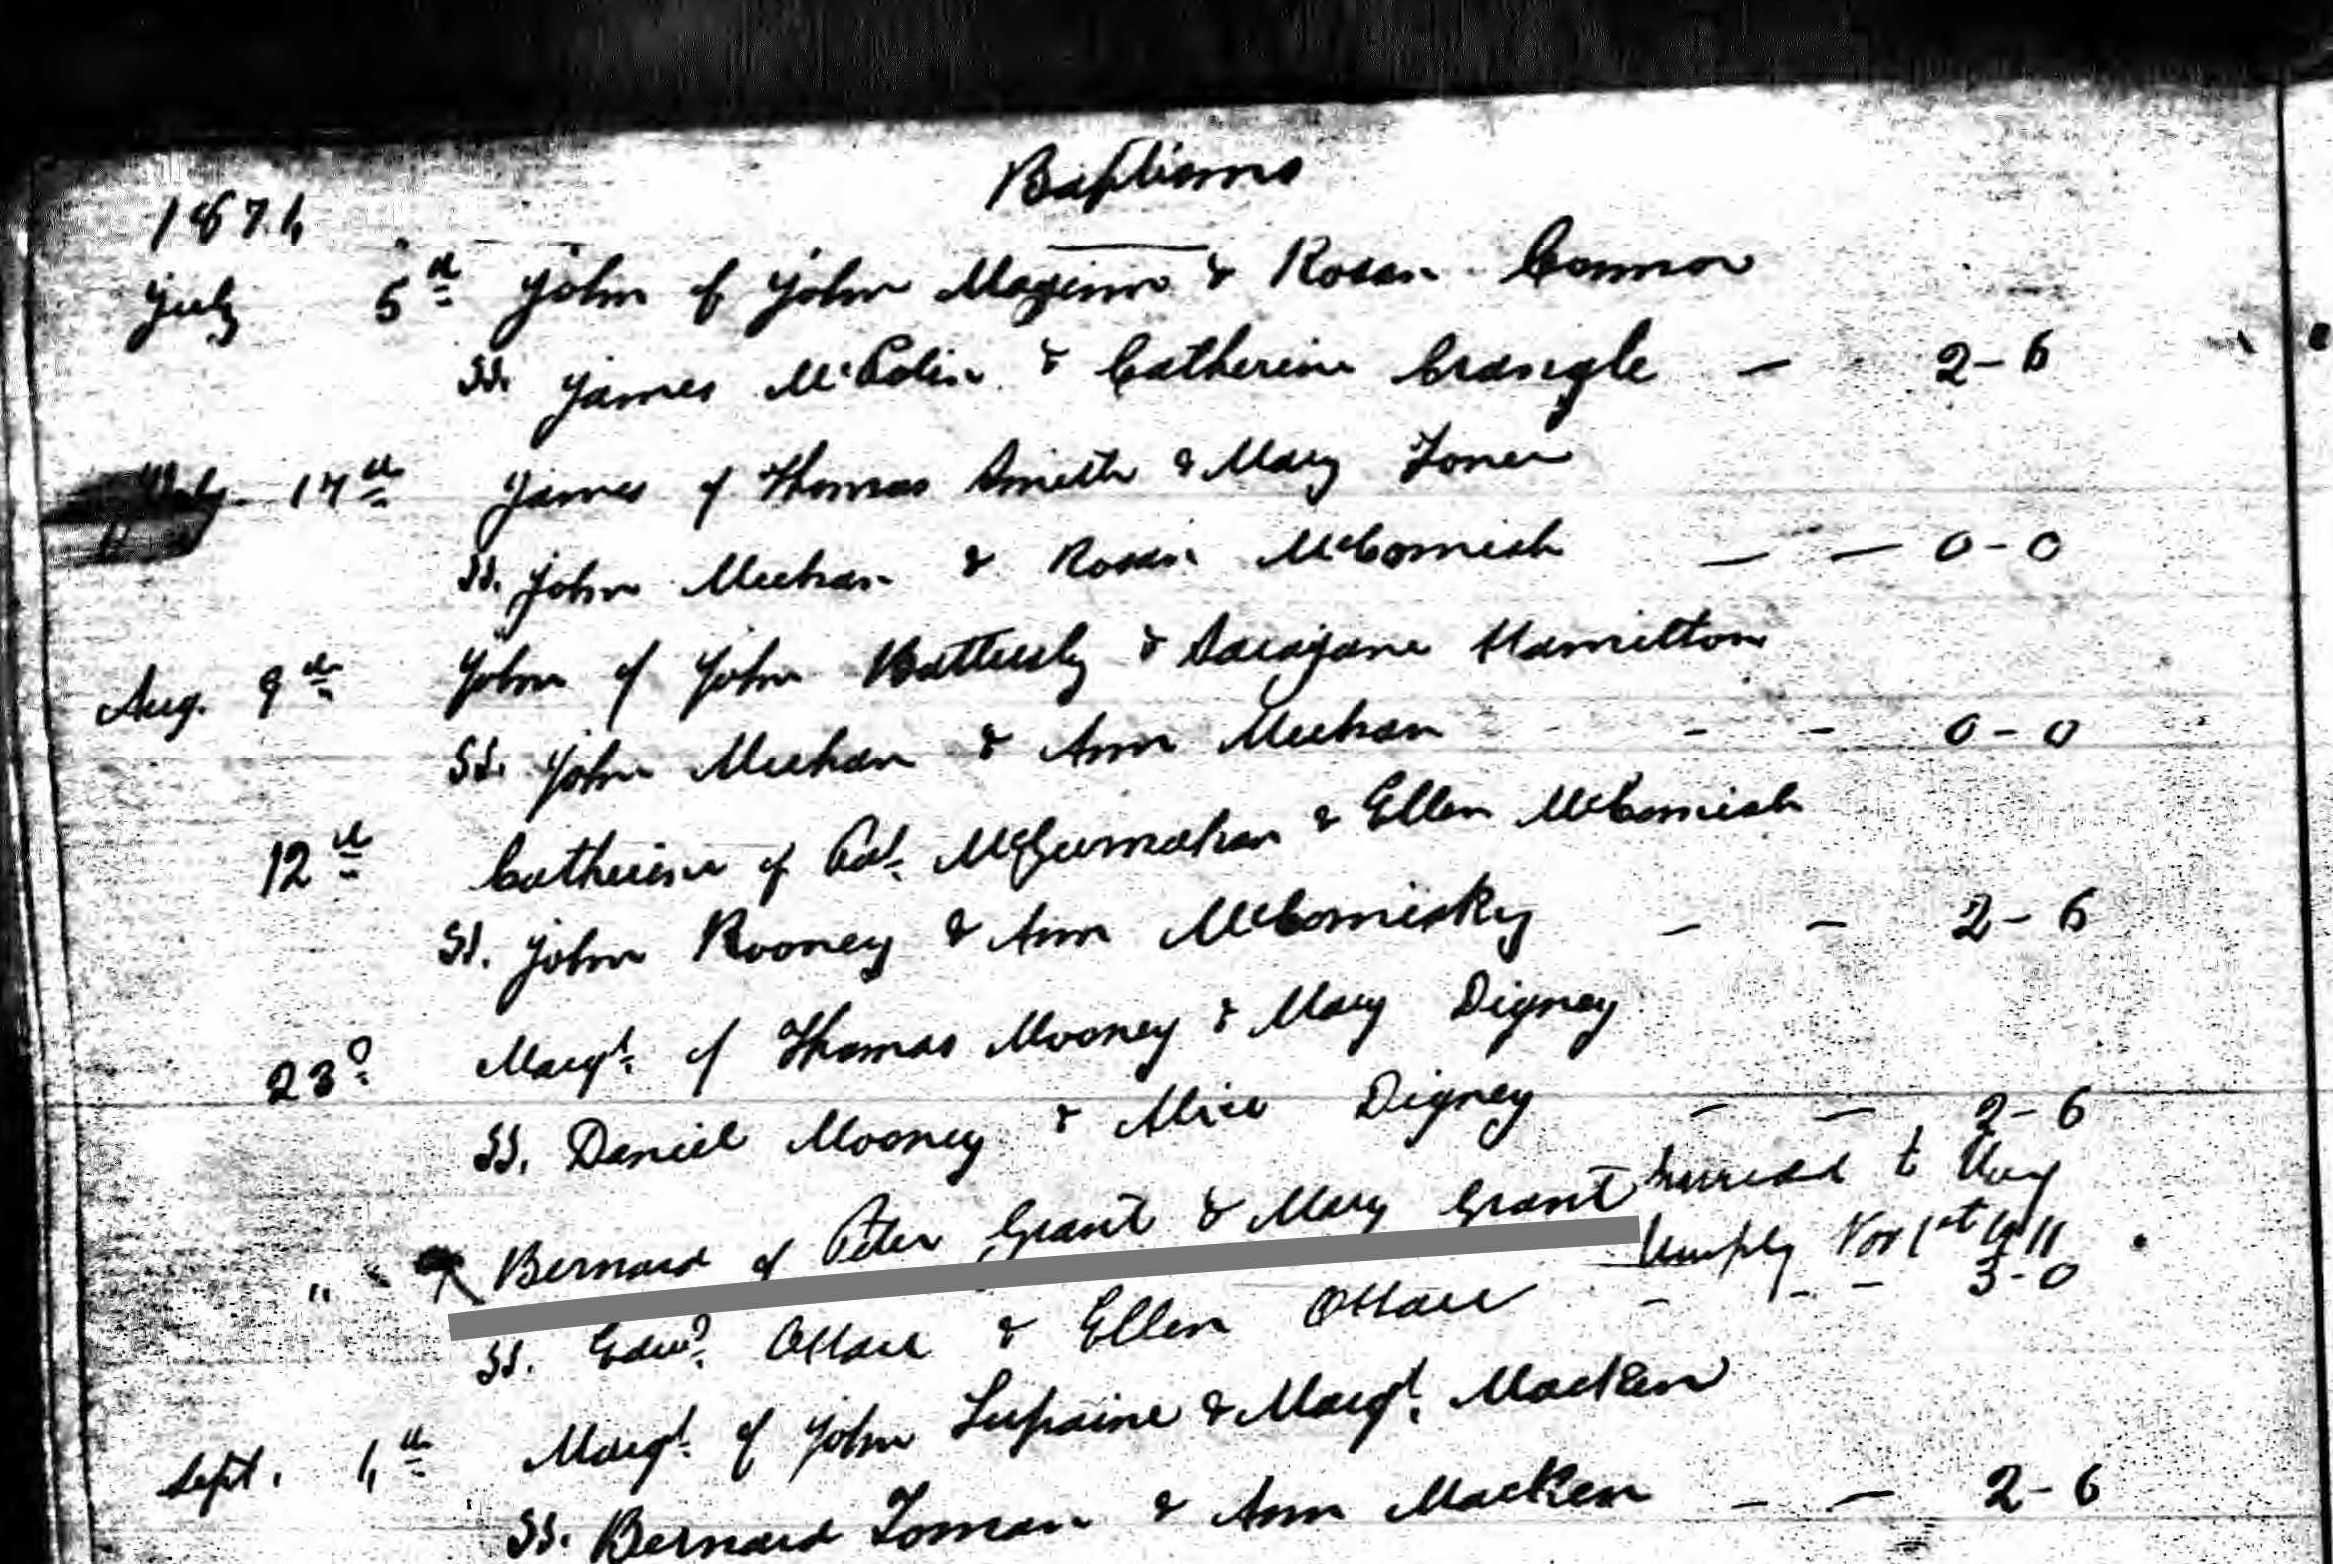 Baptisms
1874
July 5th John of John Maginn & Rosan Connor
SS. James McPolin & Catherine Crangle — 2-6
July 14th James of Thomas Smith & Mary Toner
SS. John Meehan & Rosan McComish — — 0-0
Aug. 9th John of John Battersby & Sarajane Hamilton
SS. John Meehan & Ann Meehan - - 0-0
12th Catherine of Pat. McGurnahan & Ellen McComish
SS. John Rooney & Ann McComisky - - 2-6
23d Margt. of Thomas Mooney & Mary Digney
SS. Daniel Mooney & Alice Digney - - 2-6
" Bernard of Peter Grant & Mary Grant married to
Nov 1st 1911
SS. Edwd. OHare & Ellen OHare - - - 3-0
Sept. 4th Margt. of John & Margt. Macken
SS. Bernard Toman & Ann Macken — — 2-6